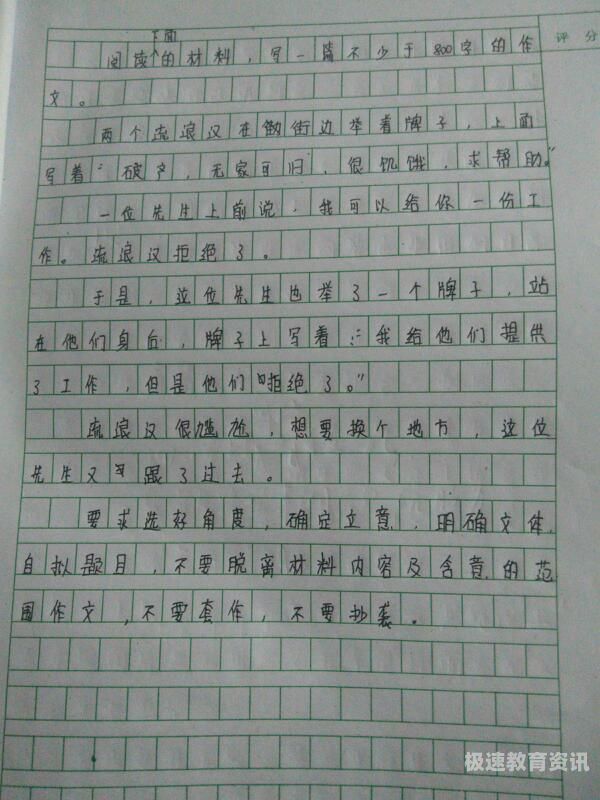 下面
阅读^的材料，写一篇不少于800字的作
评分
文。
两个流浪汉在街边举着牌子，上面
写着："破产，无家可归，很饥饿，求帮助。"
一位先生上前说，我可以给你一份工
作。流浪汉拒绝了。
于是，这位先生也举了一个牌子，站
在他们身后，牌子上写着："我给他们提供
了工作，但是他们拒绝了。"
流浪汉很尴尬，想要换个地方，这位
先生又跟了过去。
要求选好角度，确定立意，明确文体，
自拟题目，不要脱离材料内容及含意的范
围作文，不要套作，不要抄袭。
极速教育资讯